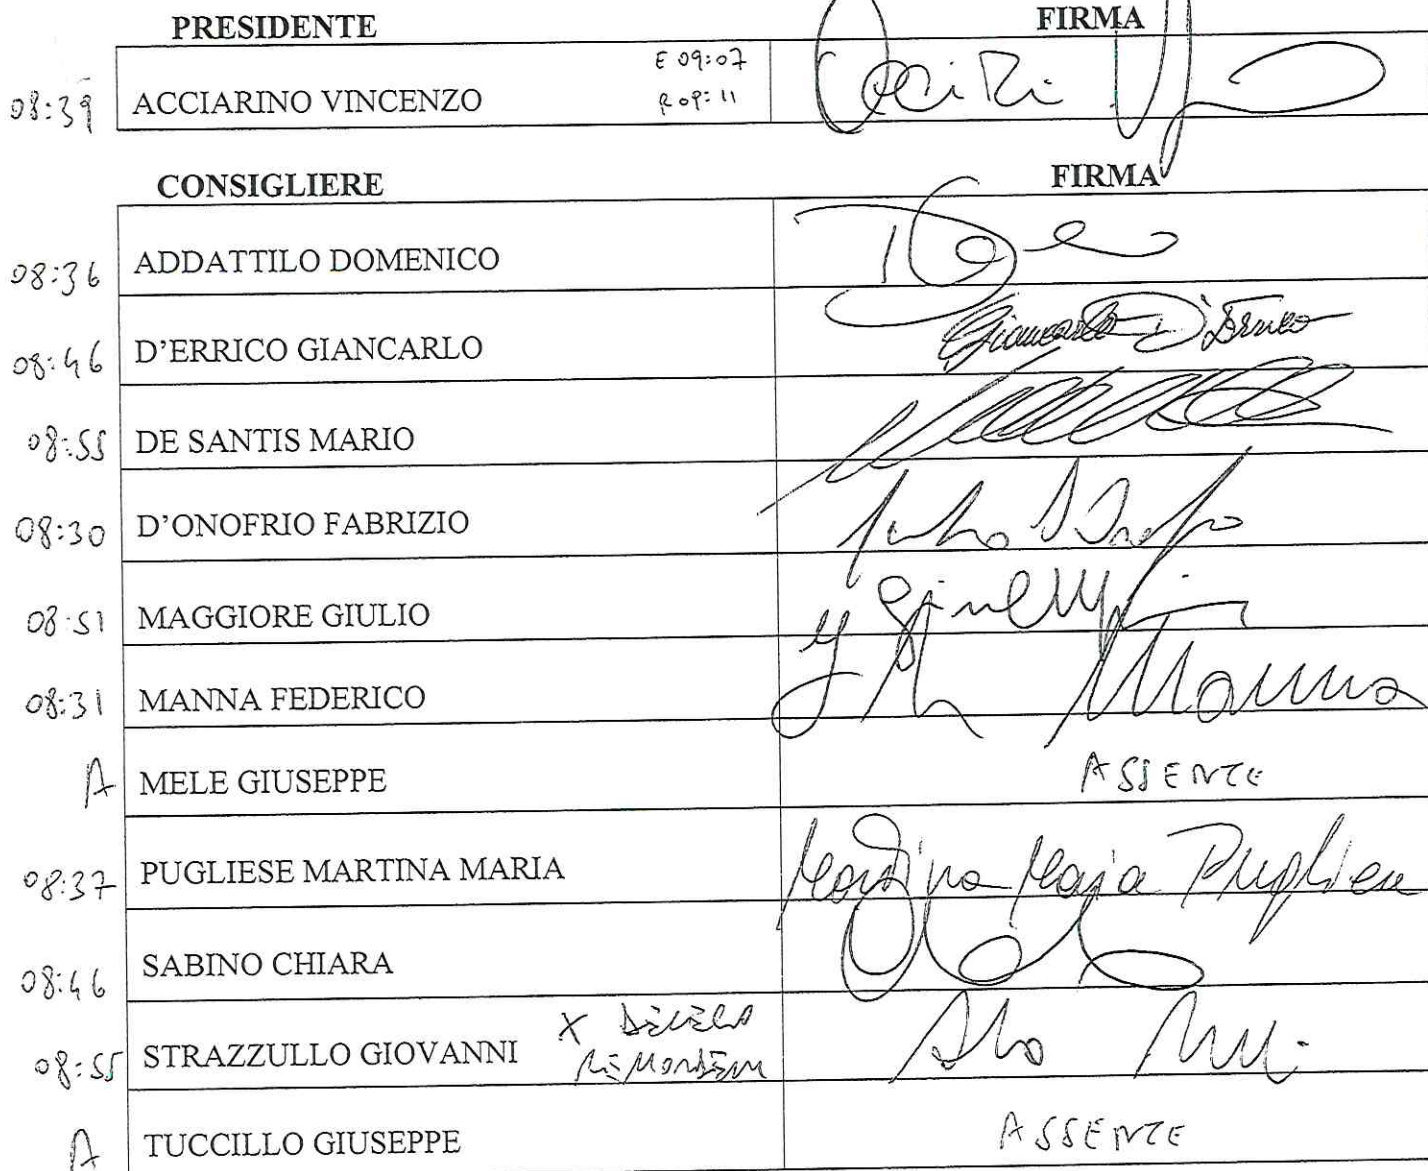 PRESIDENTE FIRMA
08:39 ACCIARINO VINCENZO E 09:07
R 09:11
CONSIGLIERE FIRMA
08:36 ADDATTILO DOMENICO
08:46 D'ERRICO GIANCARLO Giancarlo D'Errico
08:55 DE SANTIS MARIO
08:30 D'ONOFRIO FABRIZIO
08:51 MAGGIORE GIULIO
08:31 MANNA FEDERICO Manna
A MELE GIUSEPPE ASSENTE
08:37 PUGLIESE MARTINA MARIA Martina Maria Pugliese
08:46 SABINO CHIARA
08:55 STRAZZULLO GIOVANNI X DELEGA
A TUCCILLO GIUSEPPE ASSENTE